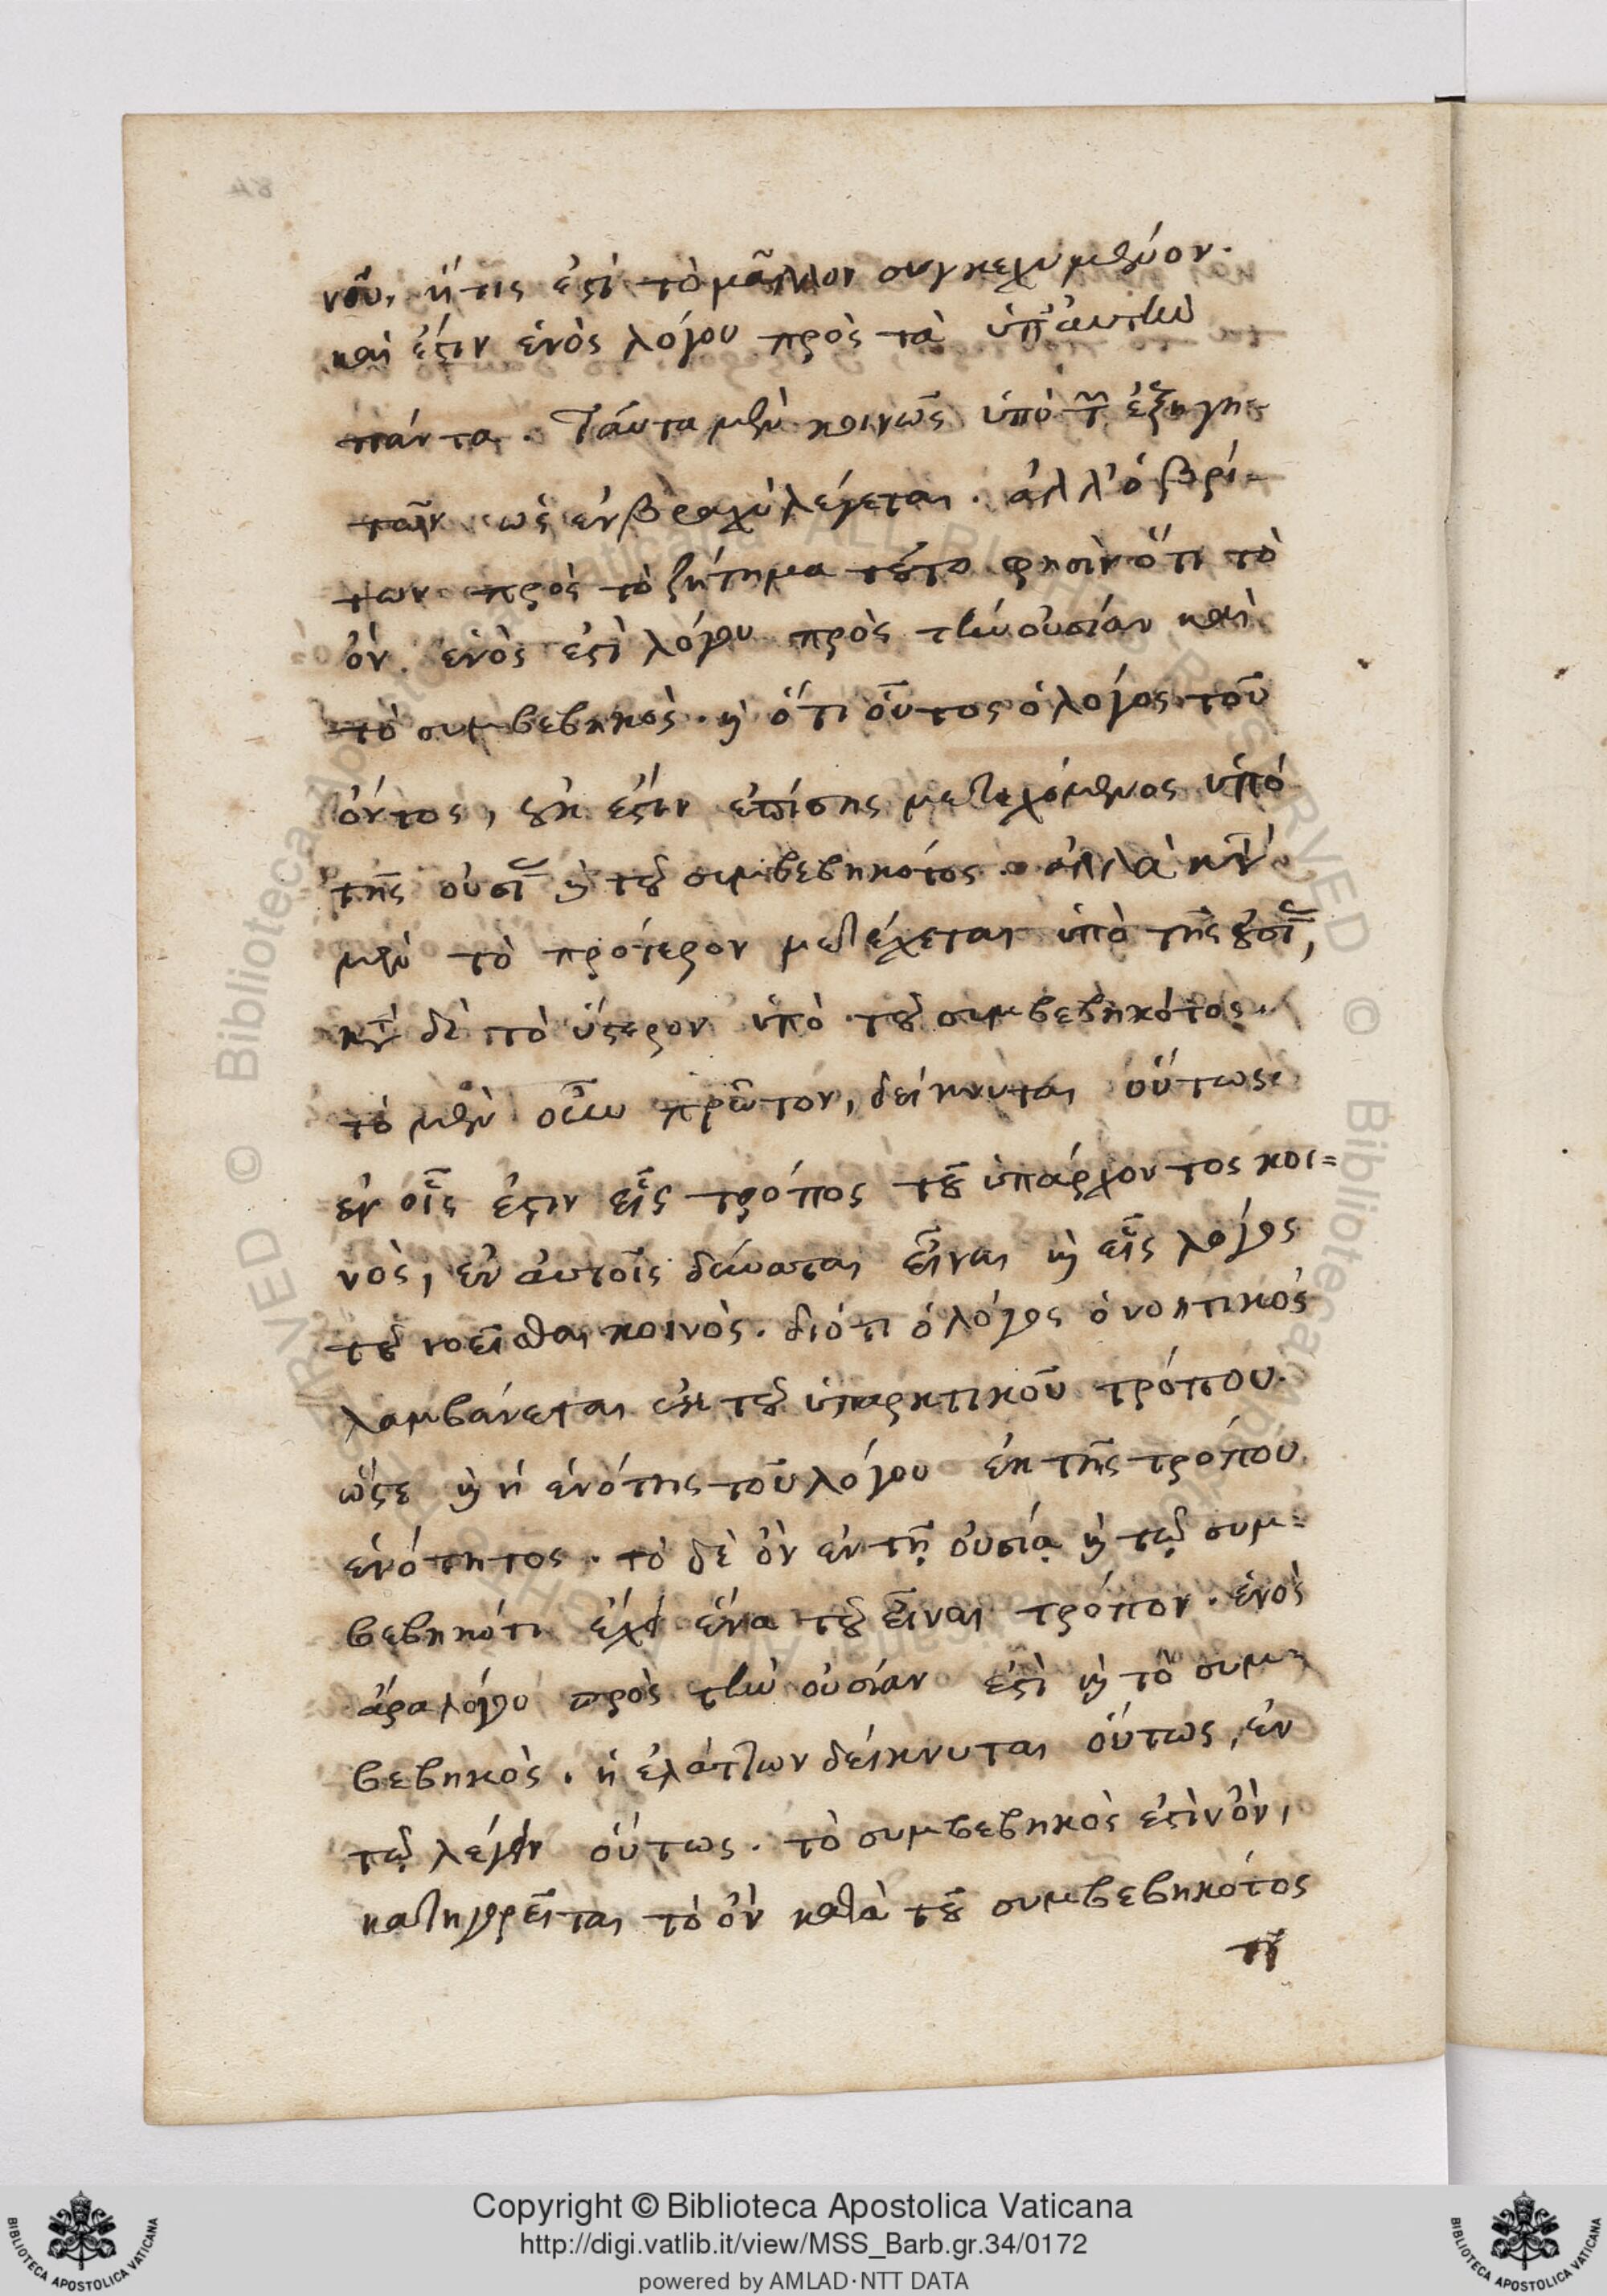 νοῦν, ἥτις ἐστὶ τὸ μᾶλλον συγκεχυμένον.
καὶ ἔστιν ἑνὸς λόγου πρὸς τὰ ὑπ' αὐτὴν
πάντα. Ταῦτα μὲν κοινῶς ὑπὸ τῶν ἐξηγη-
τῶν ὡς ἐν βραχὺ λέγεται. ἀλλ' ὁ βρί-
των πρὸς τὸ ζήτημα τοῦτο φησὶν ὅτι τὸ
ὂν ἑνὸς ἐστὶ λόγου πρὸς τὴν οὐσίαν καὶ
τὸ συμβεβηκὸς. καὶ ὅτι οὗτος ὁ λόγος τοῦ
ὄντος, οὐκ ἔστιν ἐπίσης μετεχόμενος ὑπὸ
τῆς οὐσίας καὶ τοῦ συμβεβηκότος. ἀλλὰ κατὰ
μὲν τὸ πρότερον μετέχεται ὑπὸ τῆς οὐσίας,
κατὰ δὲ τὸ ὕστερον ὑπὸ τοῦ συμβεβηκότος.
τὸ μὲν οὖν πρῶτον, δείκνυται οὕτως
ἐν οἷς ἔστιν εἷς τρόπος τοῦ ὑπάρχοντος κοι=
νὸς, ἐν αὐτοῖς δύναται εἶναι καὶ εἷς λόγος
τοῦ νοεῖσθαι κοινὸς. διότι ὁ λόγος ὁ νοητικὸς
λαμβάνεται ἐκ τοῦ ὑπαρκτικοῦ τρόπου.
ὥστε καὶ ἡ ἑνότης τοῦ λόγου ἐκ τῆς τρόπου
ἑνότητος. τὸ δὲ ὂν ἐν τῇ οὐσίᾳ καὶ τῷ συμ=
βεβηκότι ἔχει ἕνα τοῦ εἶναι τρόπον. ἑνὸς
ἄρα λόγου πρὸς τὴν οὐσίαν ἐστὶ καὶ τὸ συμ=
βεβηκὸς. ἡ ἐλάττων δείκνυται οὕτως, ἐν
τῷ λέγειν οὕτως. τὸ συμβεβηκὸς ἐστὶν ὂν,
κατηγορεῖται τὸ ὂν κατὰ τοῦ συμβεβηκότος
Copyright © Biblioteca Apostolica Vaticana
http://digi.vatlib.it/view/MSS_Barb.gr.34/0172
powered by AMLAD·NTT DATA
BIBLIOTECA APOSTOLICA VATICANA
BIBLIOTECA APOSTOLICA VATICANA